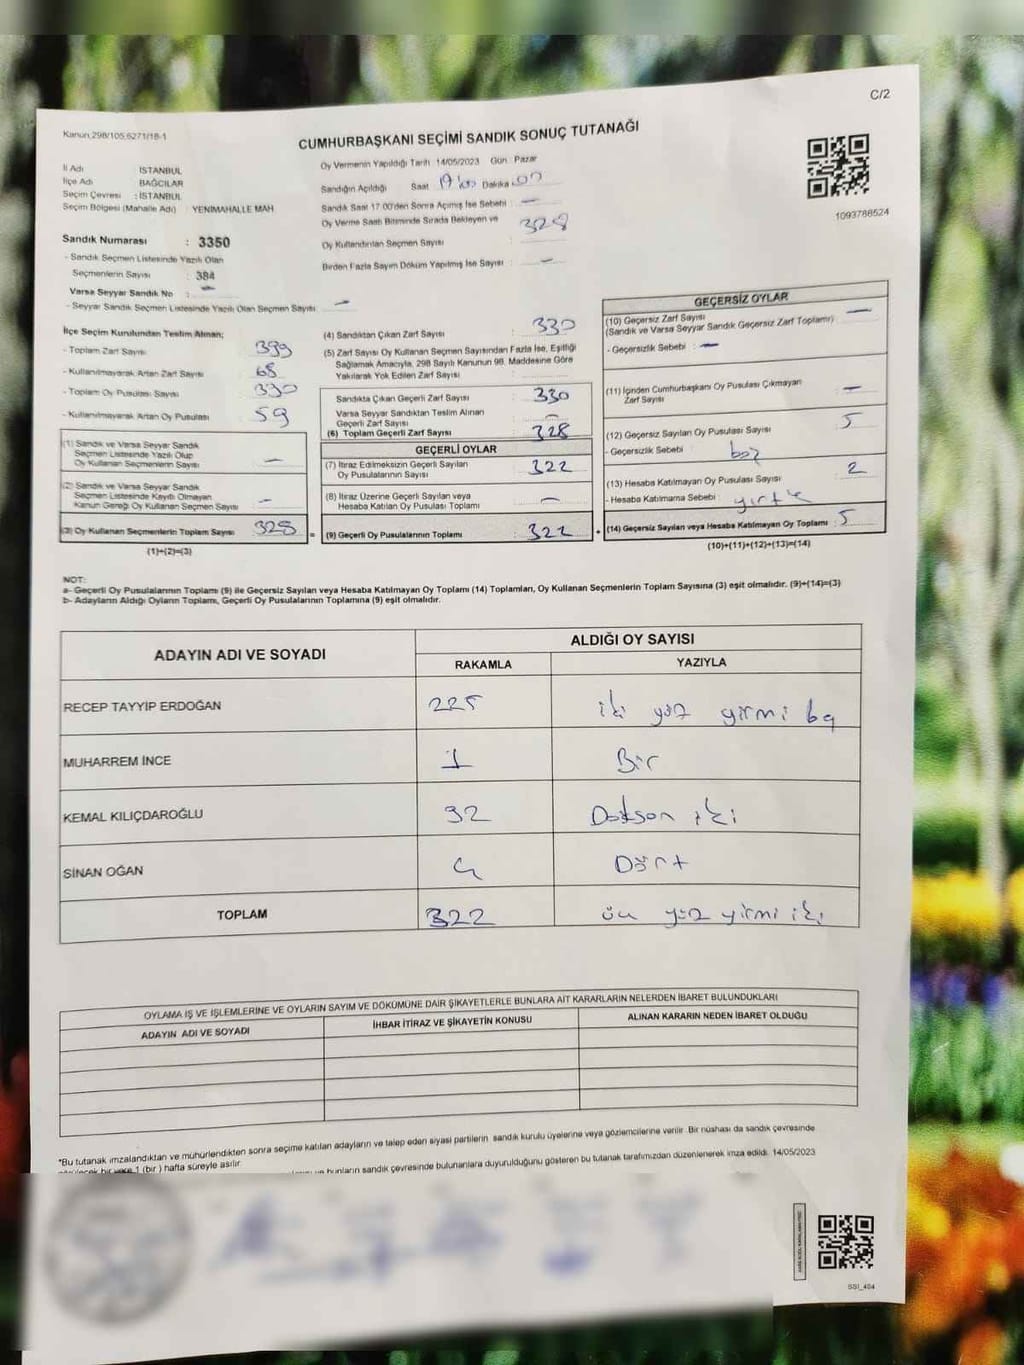 C/2
Kanun,298/105,6271/18-1
CUMHURBAŞKANI SEÇİMİ SANDIK SONUÇ TUTANAĞI
1093788524
İl Adı İSTANBUL
İlçe Adı BAĞCILAR
Seçim Çevresi : İSTANBUL
Seçim Bölgesi (Mahalle Adı) : YENİMAHALLE MAH
Sandık Numarası : 3350
- Sandık Seçmen Listesinde Yazılı Olan
Seçmenlerin Sayısı : 384
Varsa Seyyar Sandık No : -
- Seyyar Sandık Seçmen Listesinde Yazılı Olan Seçmen Sayısı : -
Oy Vermenin Yapıldığı Tarih 14/05/2023 Gün Pazar
Sandığın Açıldığı Saat Dakika
Sandık Saat 17.00'den Sonra Açımış İse Sebebi : -
Oy Verme Saati Bitiminde Sırada Bekleyen ve
Oy Kullandırılan Seçmen Sayısı : 328
Birden Fazla Sayım Döküm Yapılmış İse Sayısı : -
İlçe Seçim Kurulundan Teslim Alınan;
- Toplam Zarf Sayısı 399
- Kullanılmayarak Artan Zarf Sayısı 68
- Toplam Oy Pusulası Sayısı 330
- Kullanılmayarak Artan Oy Pusulası 59
(1) Sandık ve Varsa Seyyar Sandık
Seçmen Listesinde Yazılı Olup
Oy Kullanan Seçmenlerin Sayısı -
(2) Sandık ve Varsa Seyyar Sandık
Seçmen Listesinde Kayıtlı Olmayan
Kanun Gereği Oy Kullanan Seçmen Sayısı -
(3) Oy Kullanan Seçmenlerin Toplam Sayısı 328
(1)+(2)=(3)
(4) Sandıktan Çıkan Zarf Sayısı : 330
(5) Zarf Sayısı Oy Kullanan Seçmen Sayısından Fazla İse, Eşitliği
Sağlamak Amacıyla, 298 Sayılı Kanunun 98. Maddesine Göre
Yakılarak Yok Edilen Zarf Sayısı :
Sandıkta Çıkan Geçerli Zarf Sayısı : 330
Varsa Seyyar Sandıktan Teslim Alınan
Geçerli Zarf Sayısı : -
(6) Toplam Geçerli Zarf Sayısı : 328
GEÇERLİ OYLAR
(7) İtiraz Edilmeksizin Geçerli Sayılan
Oy Pusulalarının Sayısı : 322
(8) İtiraz Üzerine Geçerli Sayılan veya
Hesaba Katılan Oy Pusulası Toplamı : -
= (9) Geçerli Oy Pusulalarının Toplamı : 322 +
GEÇERSİZ OYLAR
(10) Geçersiz Zarf Sayısı
(Sandık ve Varsa Seyyar Sandık Geçersiz Zarf Toplamı) : -
- Geçersizlik Sebebi : -
(11) İçinden Cumhurbaşkanı Oy Pusulası Çıkmayan
Zarf Sayısı : -
(12) Geçersiz Sayılan Oy Pusulası Sayısı : 5
- Geçersizlik Sebebi : boş
(13) Hesaba Katılmayan Oy Pusulası Sayısı : 2
- Hesaba Katılmama Sebebi : yırtık
(14) Geçersiz Sayılan veya Hesaba Katılmayan Oy Toplamı : 5
(10)+(11)+(12)+(13)=(14)
NOT:
a- Geçerli Oy Pusulalarının Toplamı (9) ile Geçersiz Sayılan veya Hesaba Katılmayan Oy Toplamı (14) Toplamları, Oy Kullanan Seçmenlerin Toplam Sayısına (3) eşit olmalıdır. (9)+(14)=(3)
b- Adayların Aldığı Oyların Toplamı, Geçerli Oy Pusulalarının Toplamına (9) eşit olmalıdır.
ADAYIN ADI VE SOYADI ALDIĞI OY SAYISI
RAKAMLA YAZIYLA
RECEP TAYYİP ERDOĞAN 225 iki yüz yirmi beş
MUHARREM İNCE 1 Bir
KEMAL KILIÇDAROĞLU 92 Doksan iki
SİNAN OĞAN 4 Dört
TOPLAM 322 üç yüz yirmi iki
OYLAMA İŞ VE İŞLEMLERİNE VE OYLARIN SAYIM VE DÖKÜMÜNE DAİR ŞİKAYETLERLE BUNLARA AİT KARARLARIN NELERDEN İBARET BULUNDUKLARI
ADAYIN ADI VE SOYADI İHBAR İTİRAZ VE ŞİKAYETİN KONUSU ALINAN KARARIN NEDEN İBARET OLDUĞU
*Bu tutanak imzalandıktan ve mühürlendikten sonra seçime katılan adayların ve talep eden siyasi partilerin sandık kurulu üyelerine veya gözlemcilerine verilir. Bir nüshası da sandık çevresinde
1 (bir) hafta süreyle asılır.
bunların sandık çevresinde bulunanlara duyurulduğunu gösteren bu tutanak tarafımızdan düzenlenerek imza edildi. 14/05/2023